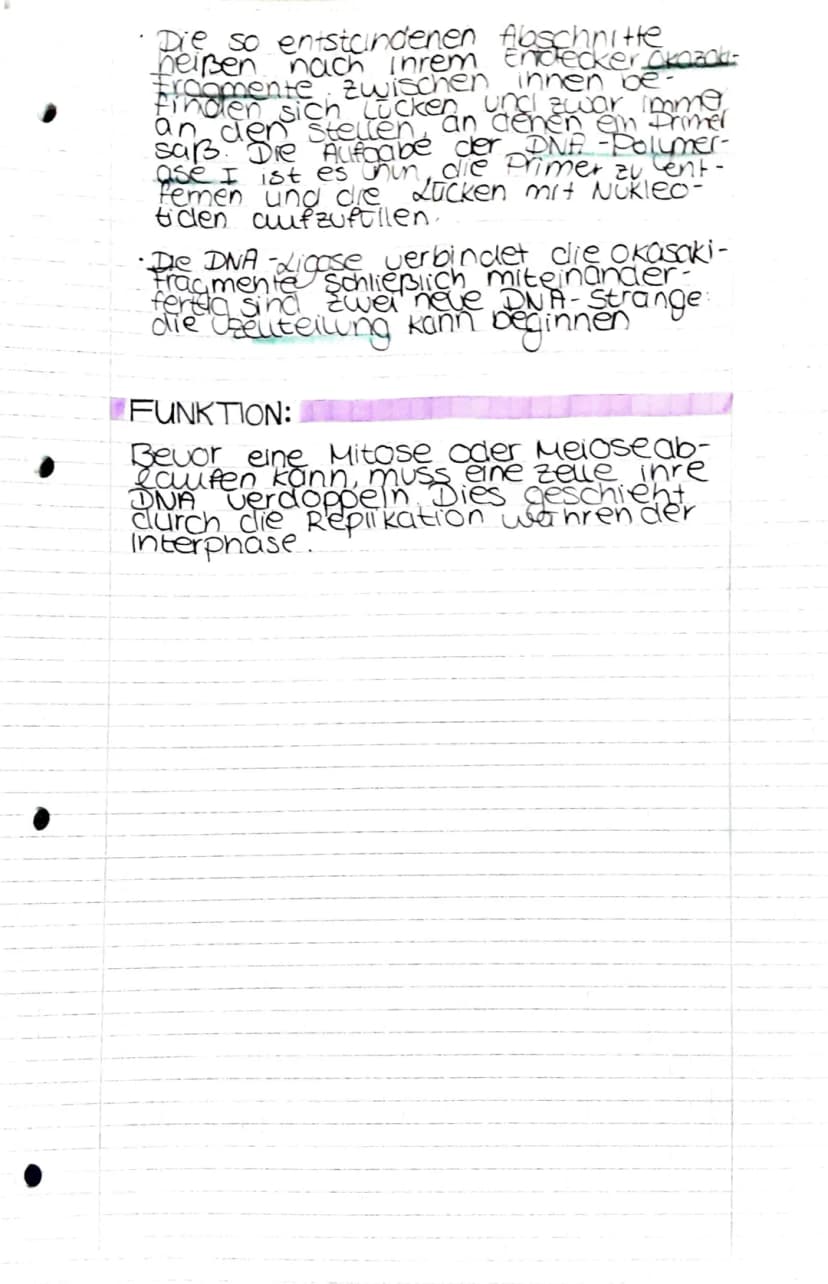 · Die so entstandenen Abschnitte
heißen nach ihrem Endecker Okazaki-
Fragmente. Zwischen ihnen be-
finden sich Lücken und zwar imme
an den Stellen, an denen ein Primer
saß. Die Aufgabe der DNA-Polymer-
ase I ist es nun, die Primer zu ent-
fernen und die Lücken mit Nukleo-
tiden aufzufüllen.
· Die DNA-Ligase verbindet die Okasaki-
fragmente schließlich miteinander-
fertig sind zwei neue DNA-Stränge:
die Zellteilung kann beginnen
FUNKTION:
Bevor eine Mitose oder Meiose ab-
laufen kann, muss eine Zelle ihre
DNA verdoppeln. Dies geschieht
durch die Replikation währen der
Interphase.